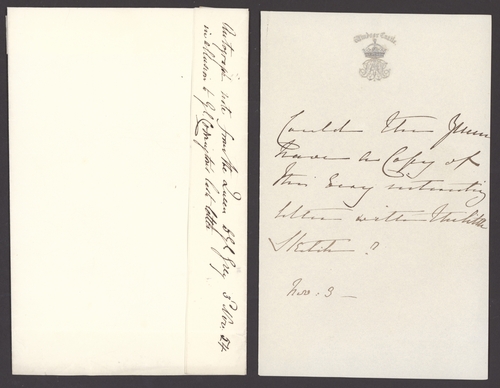 Autograph note from the Queen to Gl Grey 3 Nov. 54
in allusion to Gl Codrington's last letter
Windsor Castle
Could the Queen
have a Copy of
this very interesting
letter with the little
Sketch?
Nov: 3 —